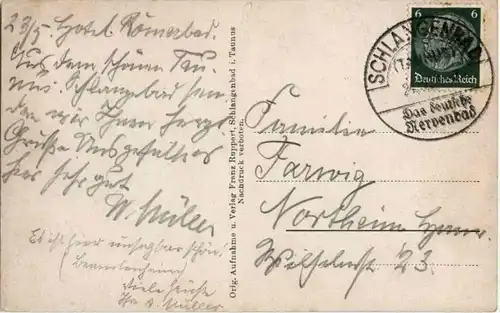 23/5. Hotel Römerbad.
Aus dem schönen Tau-
nus. Schlangenbad sen-
den wir Ihnen herzl.
Grüße. Uns gefällt es
hier sehr gut
W. Müller
Es ist hier unsagbar schön.
viele Grüße
Ihr Müller
Orig. Aufnahme u. Verlag Franz Ruppert, Schlangenbad i. Taunus
Nachdruck verboten.
6 6
Deutsches Reich
SCHLANGENBAD
Das deutsche
Nervenbad
Familie
Farwig
Northeim Hann.
Wilhelmst 23.